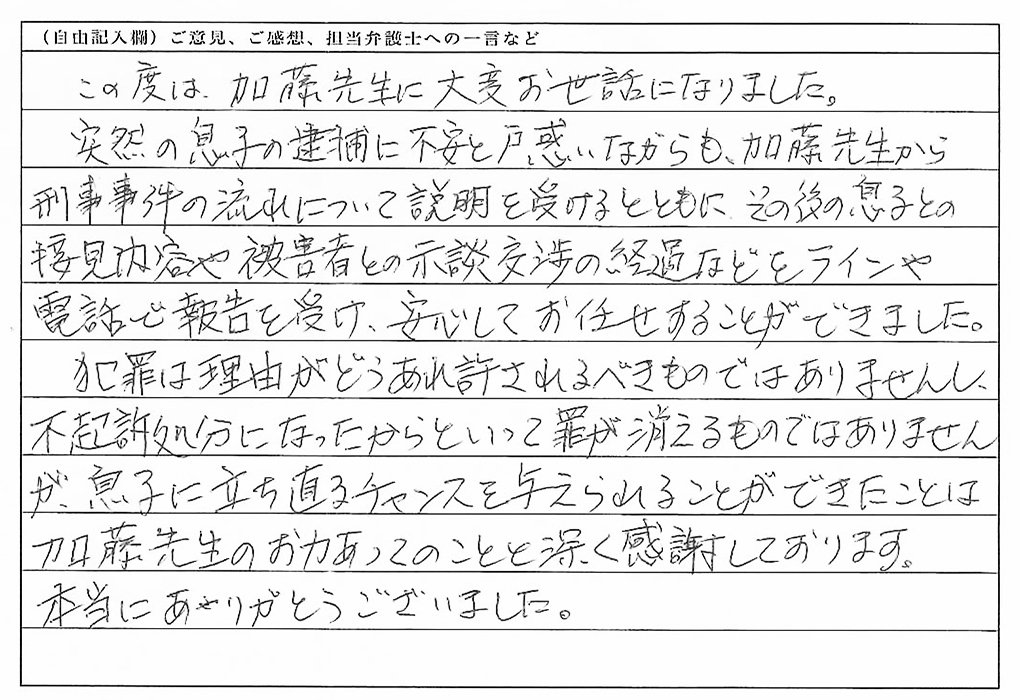 （自由記入欄）ご意見、ご感想、担当弁護士への一言など
この度は、加藤先生に大変お世話になりました。
突然の息子の逮捕に不安と戸惑いながらも、加藤先生から
刑事事件の流れについて説明を受けるとともに、その後の息子との
接見内容や被害者との示談交渉の経過などをラインや
電話で報告を受け、安心してお任せすることができました。
犯罪は理由がどうあれ許されるべきものではありませんし、
不起訴処分になったからといって罪が消えるものではありません
が、息子に立ち直るチャンスを与えられることができたことは
加藤先生のお力あってのことと深く感謝しております。
本当にありがとうございました。